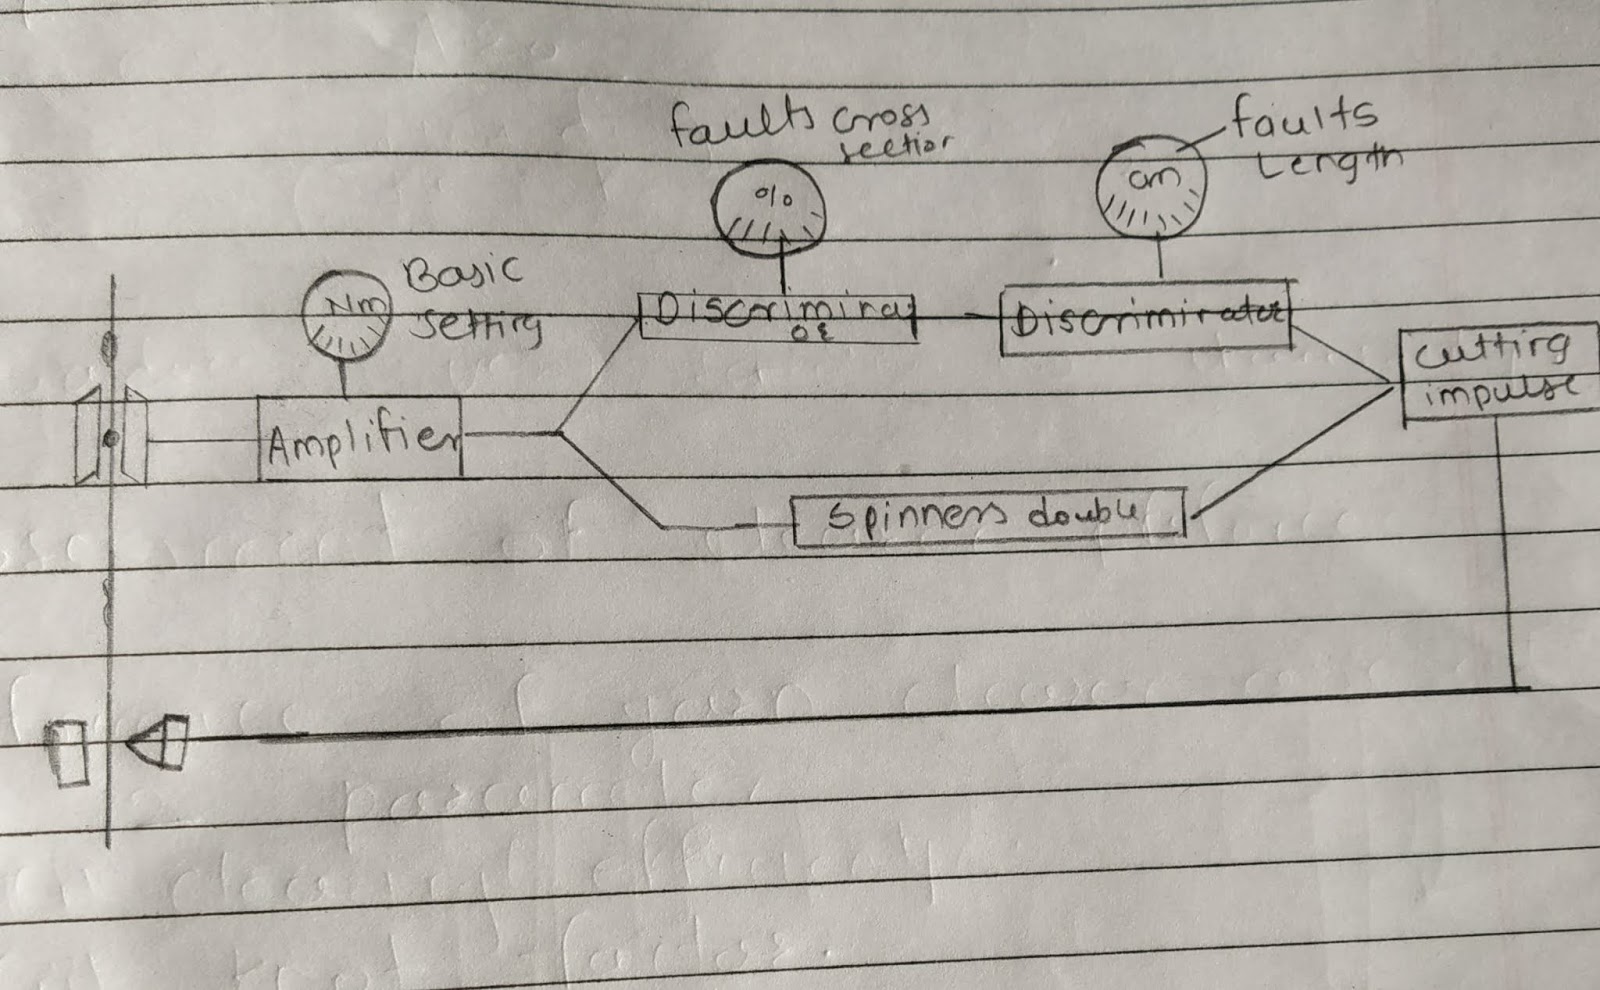 faults cross
section
faults
Length
%
cm
Basic
setting
Nm
Discriminat
or
Discriminator
cutting
impulse
Amplifier
Spinners double